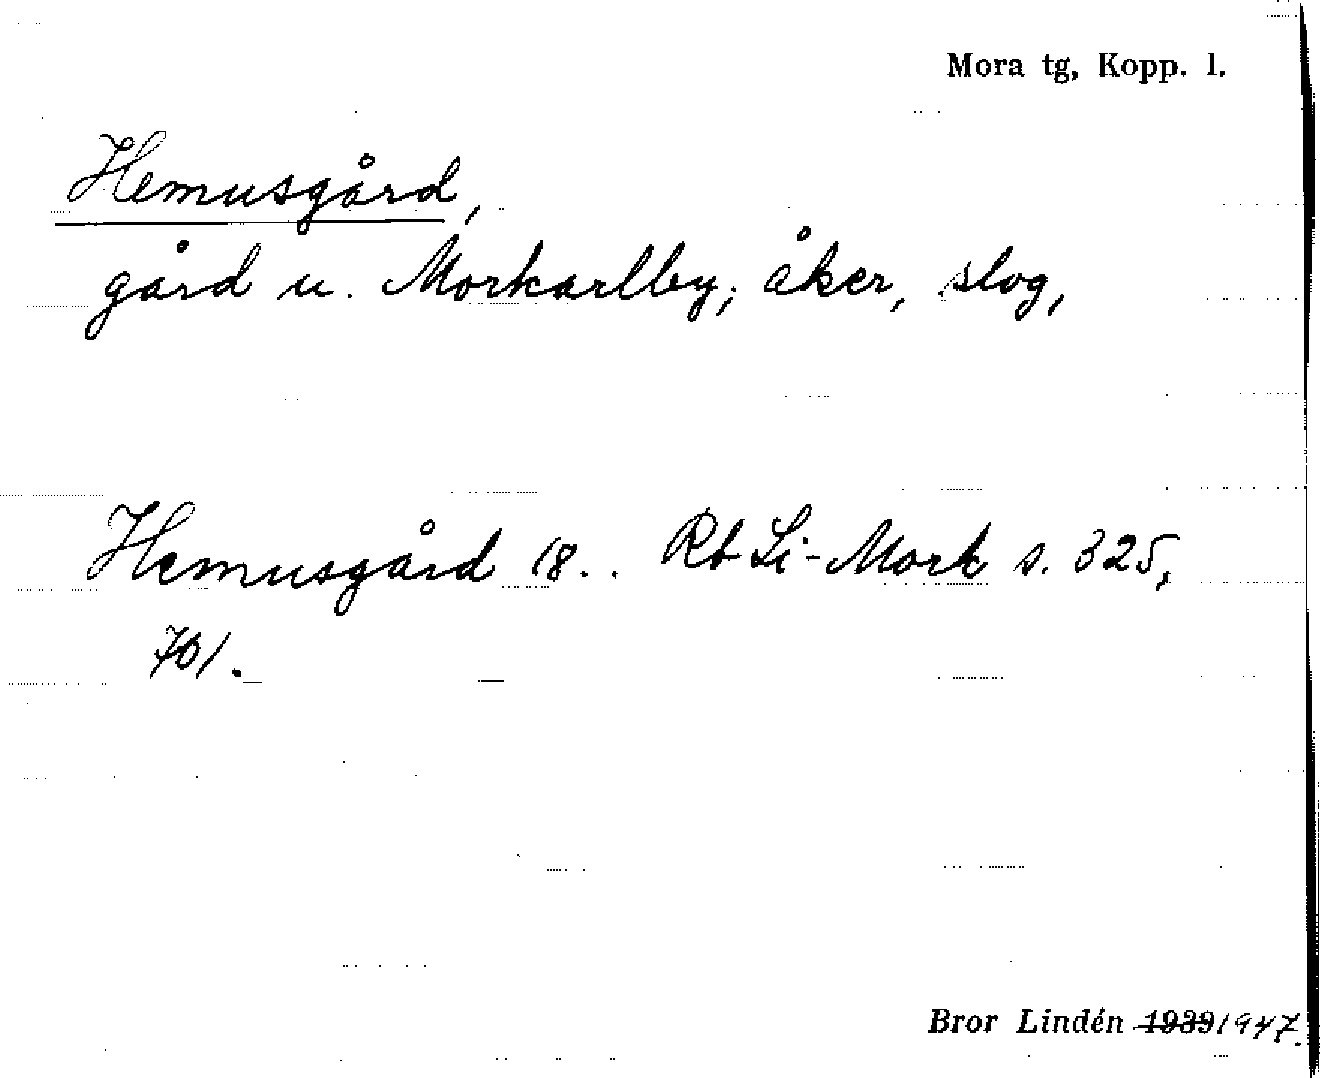 Mora tg, Kopp. l.
Hemusgård,
gård u. Morkarlby; åker, slog,
Hemusgård 18.. Rb Li-Mork s. 325,
701.
Bror Lindén 1939 1947.